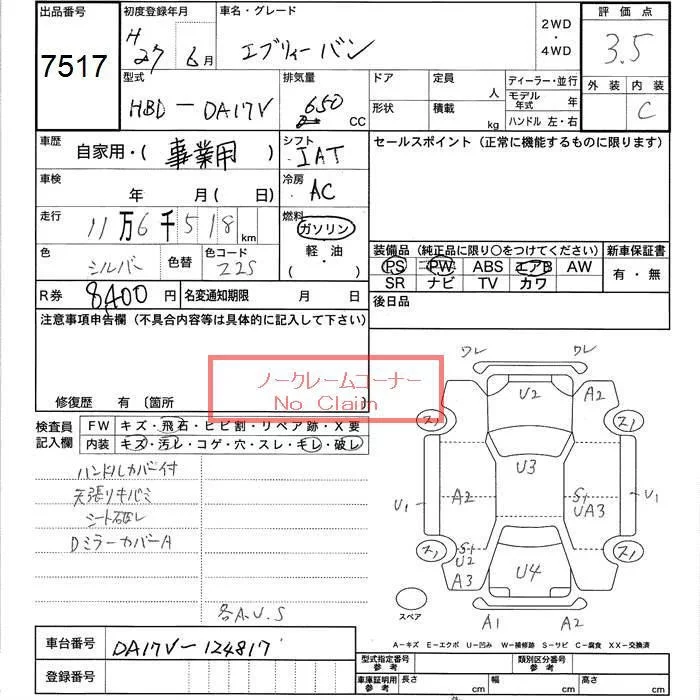 出品番号 初度登録年月 車名・グレード 2WD ・ 4WD 評価点
7517 H 27 6月 エブリィーバン 3.5
型式 排気量 ドア 定員 人 ディーラー・並行 外装 内装
HBD-DA17V 650 CC 形状 積載 kg モデル年式 年 C
ハンドル 左・右
車歴 自家用・( 事業用 ) シフト IAT セールスポイント (正常に機能するものに限ります)
車検 年 月( 日) 冷房 AC
走行 11万6千518km 燃料 ガソリン
軽・油
( ・ )
色 シルバー 色替 色コード Z2S
装備品 (純正品に限り○をつけてください) 新車保証書
PS PW ABS エアB AW 有・無
SR ナビ TV カワ
R券 8400円 名変通知期限 月 日 後日品
注意事項申告欄 (不具合内容等は具体的に記入して下さい)
ノークレームコーナー
No Claim
修復歴 有 〔箇所
検査員記入欄 FW キズ・飛石・ヒビ割・リペア跡・X要
内装 キズ・汚レ・コゲ・穴・スレ・キレ・破レ
ハンドルカバー付
天張リキバミ
シート破レ
DミラーカバーA
各A.U.S
ワレ ワレ
U2 A2
ス1 ス1
U3
U1 A2 S1 UA3 U1
ス1 S1 U2 A3 U4 ス1
スペア A1 A2
A-キズ E-エクボ U-凹み W-補修跡 S-サビ C-腐食 XX-交換済
車台番号 DA17V-124817
登録番号
型式指定番号 参考 類別区分番号 参考
車庫証明用 参考 長さ cm 幅 cm 高さ cm